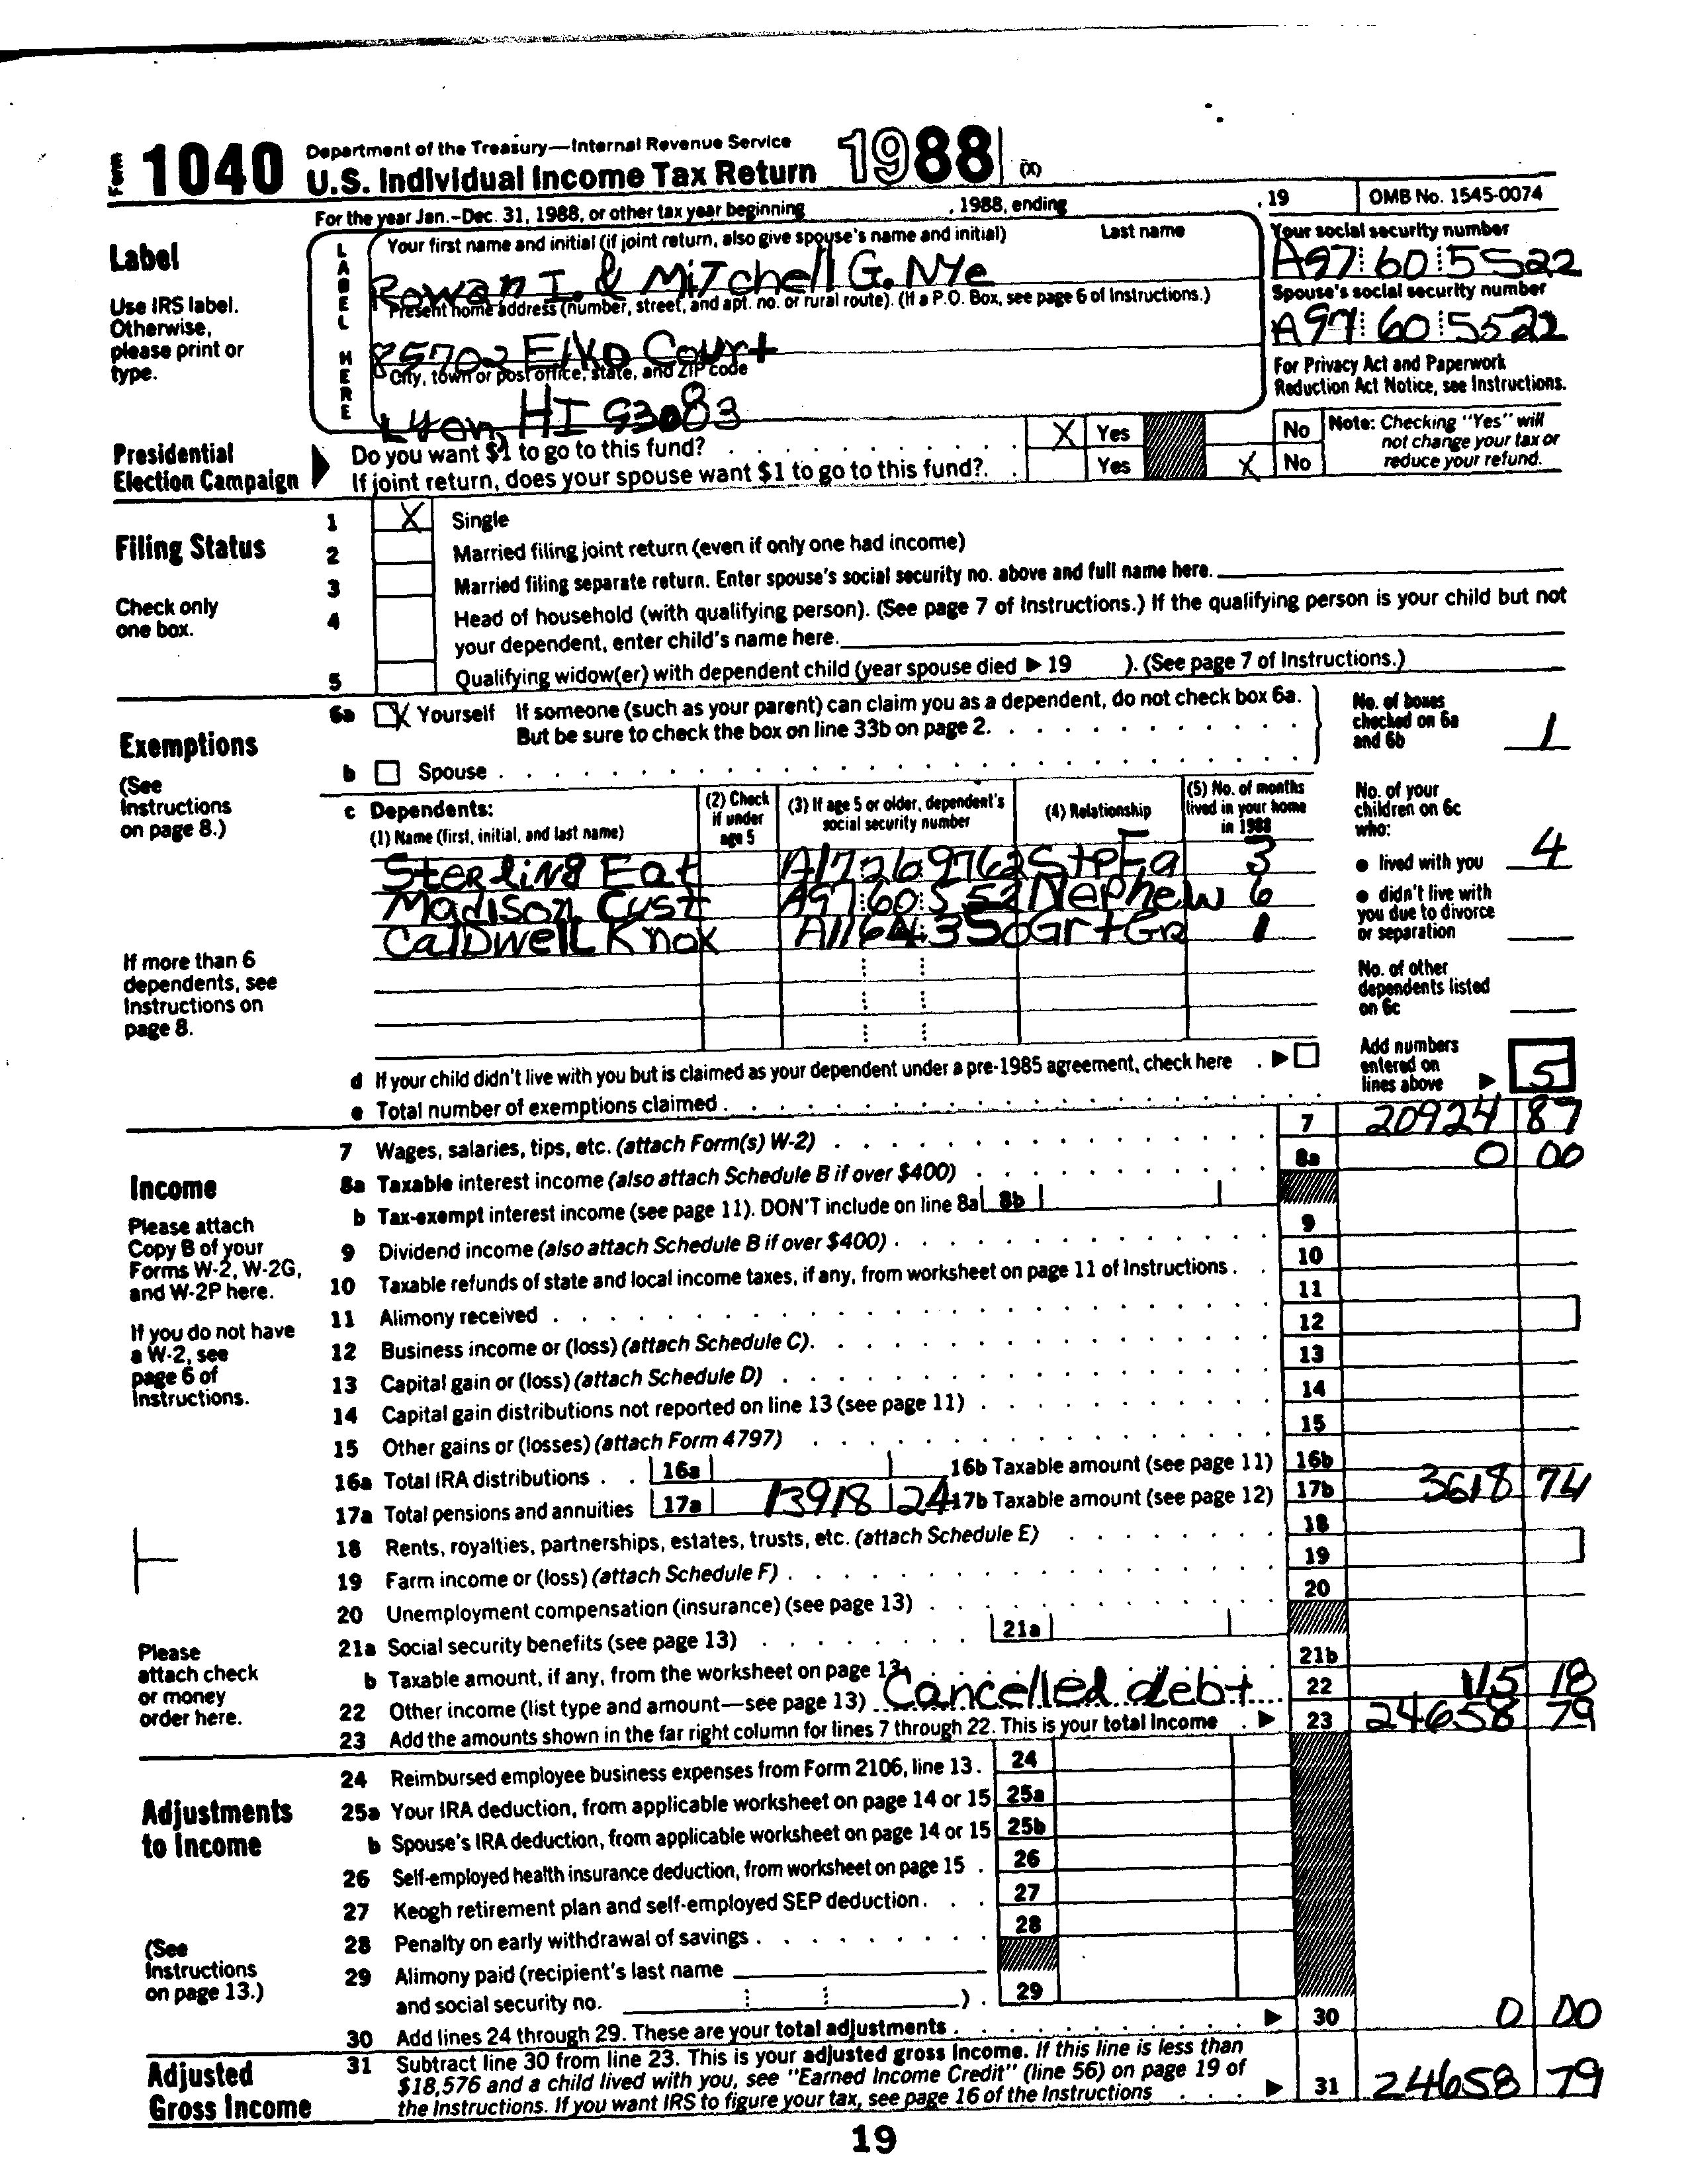 Form 1040 Department of the Treasury—Internal Revenue Service
U.S. Individual Income Tax Return 1988 (X)
For the year Jan.–Dec. 31, 1988, or other tax year beginning , 1988, ending , 19 OMB No. 1545-0074
Label
Use IRS label. Otherwise, please print or type.
LABEL HERE
Your first name and initial (if joint return, also give spouse's name and initial) Last name
Rowan I. & Mitchell G. Nye
Your social security number
A97 60 5522
Present home address (number, street, and apt. no. or rural route). (If a P.O. Box, see page 6 of Instructions.)
85702 Elko Court
Spouse's social security number
A97 60 5522
City, town or post office, state, and ZIP code
Lyon, HI 93083
For Privacy Act and Paperwork Reduction Act Notice, see Instructions.
Presidential Election Campaign
Do you want $1 to go to this fund? X Yes No
If joint return, does your spouse want $1 to go to this fund? Yes X No
Note: Checking "Yes" will not change your tax or reduce your refund.
Filing Status
Check only one box.
1 X Single
2 Married filing joint return (even if only one had income)
3 Married filing separate return. Enter spouse's social security no. above and full name here.
4 Head of household (with qualifying person). (See page 7 of Instructions.) If the qualifying person is your child but not
your dependent, enter child's name here.
5 Qualifying widow(er) with dependent child (year spouse died ▶ 19 ). (See page 7 of Instructions.)
Exemptions
(See Instructions on page 8.)
6a X Yourself If someone (such as your parent) can claim you as a dependent, do not check box 6a.
But be sure to check the box on line 33b on page 2.
b Spouse
No. of boxes checked on 6a and 6b 1
c Dependents:
(1) Name (first, initial, and last name) (2) Check if under age 5 (3) If age 5 or older, dependent's social security number (4) Relationship (5) No. of months lived in your home in 1988
Sterling Eat A17269762 StpFa 3
Madison Cust A97 60 552 Nephew 6
Caldwell Knox A1164350 GrtGr 1
If more than 6 dependents, see Instructions on page 8.
No. of your children on 6c who:
● lived with you 4
● didn't live with you due to divorce or separation
No. of other dependents listed on 6c
d If your child didn't live with you but is claimed as your dependent under a pre-1985 agreement, check here ▶
e Total number of exemptions claimed
Add numbers entered on lines above ▶ 5
Income
Please attach Copy B of your Forms W-2, W-2G, and W-2P here.
If you do not have a W-2, see page 6 of Instructions.
Please attach check or money order here.
7 Wages, salaries, tips, etc. (attach Form(s) W-2) 7 20924 87
8a Taxable interest income (also attach Schedule B if over $400) 8a 0 00
b Tax-exempt interest income (see page 11). DON'T include on line 8a 8b
9 Dividend income (also attach Schedule B if over $400) 9
10 Taxable refunds of state and local income taxes, if any, from worksheet on page 11 of Instructions 10
11 Alimony received 11
12 Business income or (loss) (attach Schedule C) 12
13 Capital gain or (loss) (attach Schedule D) 13
14 Capital gain distributions not reported on line 13 (see page 11) 14
15 Other gains or (losses) (attach Form 4797) 15
16a Total IRA distributions 16a 16b Taxable amount (see page 11) 16b
17a Total pensions and annuities 17a 13918 24 17b Taxable amount (see page 12) 17b 3618 74
18 Rents, royalties, partnerships, estates, trusts, etc. (attach Schedule E) 18
19 Farm income or (loss) (attach Schedule F) 19
20 Unemployment compensation (insurance) (see page 13) 20
21a Social security benefits (see page 13) 21a
b Taxable amount, if any, from the worksheet on page 13 21b
22 Other income (list type and amount—see page 13) Cancelled debt 22 115 18
23 Add the amounts shown in the far right column for lines 7 through 22. This is your total income ▶ 23 24658 79
Adjustments to Income
(See Instructions on page 13.)
24 Reimbursed employee business expenses from Form 2106, line 13. 24
25a Your IRA deduction, from applicable worksheet on page 14 or 15 25a
b Spouse's IRA deduction, from applicable worksheet on page 14 or 15 25b
26 Self-employed health insurance deduction, from worksheet on page 15 26
27 Keogh retirement plan and self-employed SEP deduction 27
28 Penalty on early withdrawal of savings 28
29 Alimony paid (recipient's last name
and social security no. ) 29
30 Add lines 24 through 29. These are your total adjustments ▶ 30 0 00
Adjusted Gross Income
31 Subtract line 30 from line 23. This is your adjusted gross income. If this line is less than
$18,576 and a child lived with you, see "Earned Income Credit" (line 56) on page 19 of
the Instructions. If you want IRS to figure your tax, see page 16 of the Instructions ▶ 31 24658 79
19